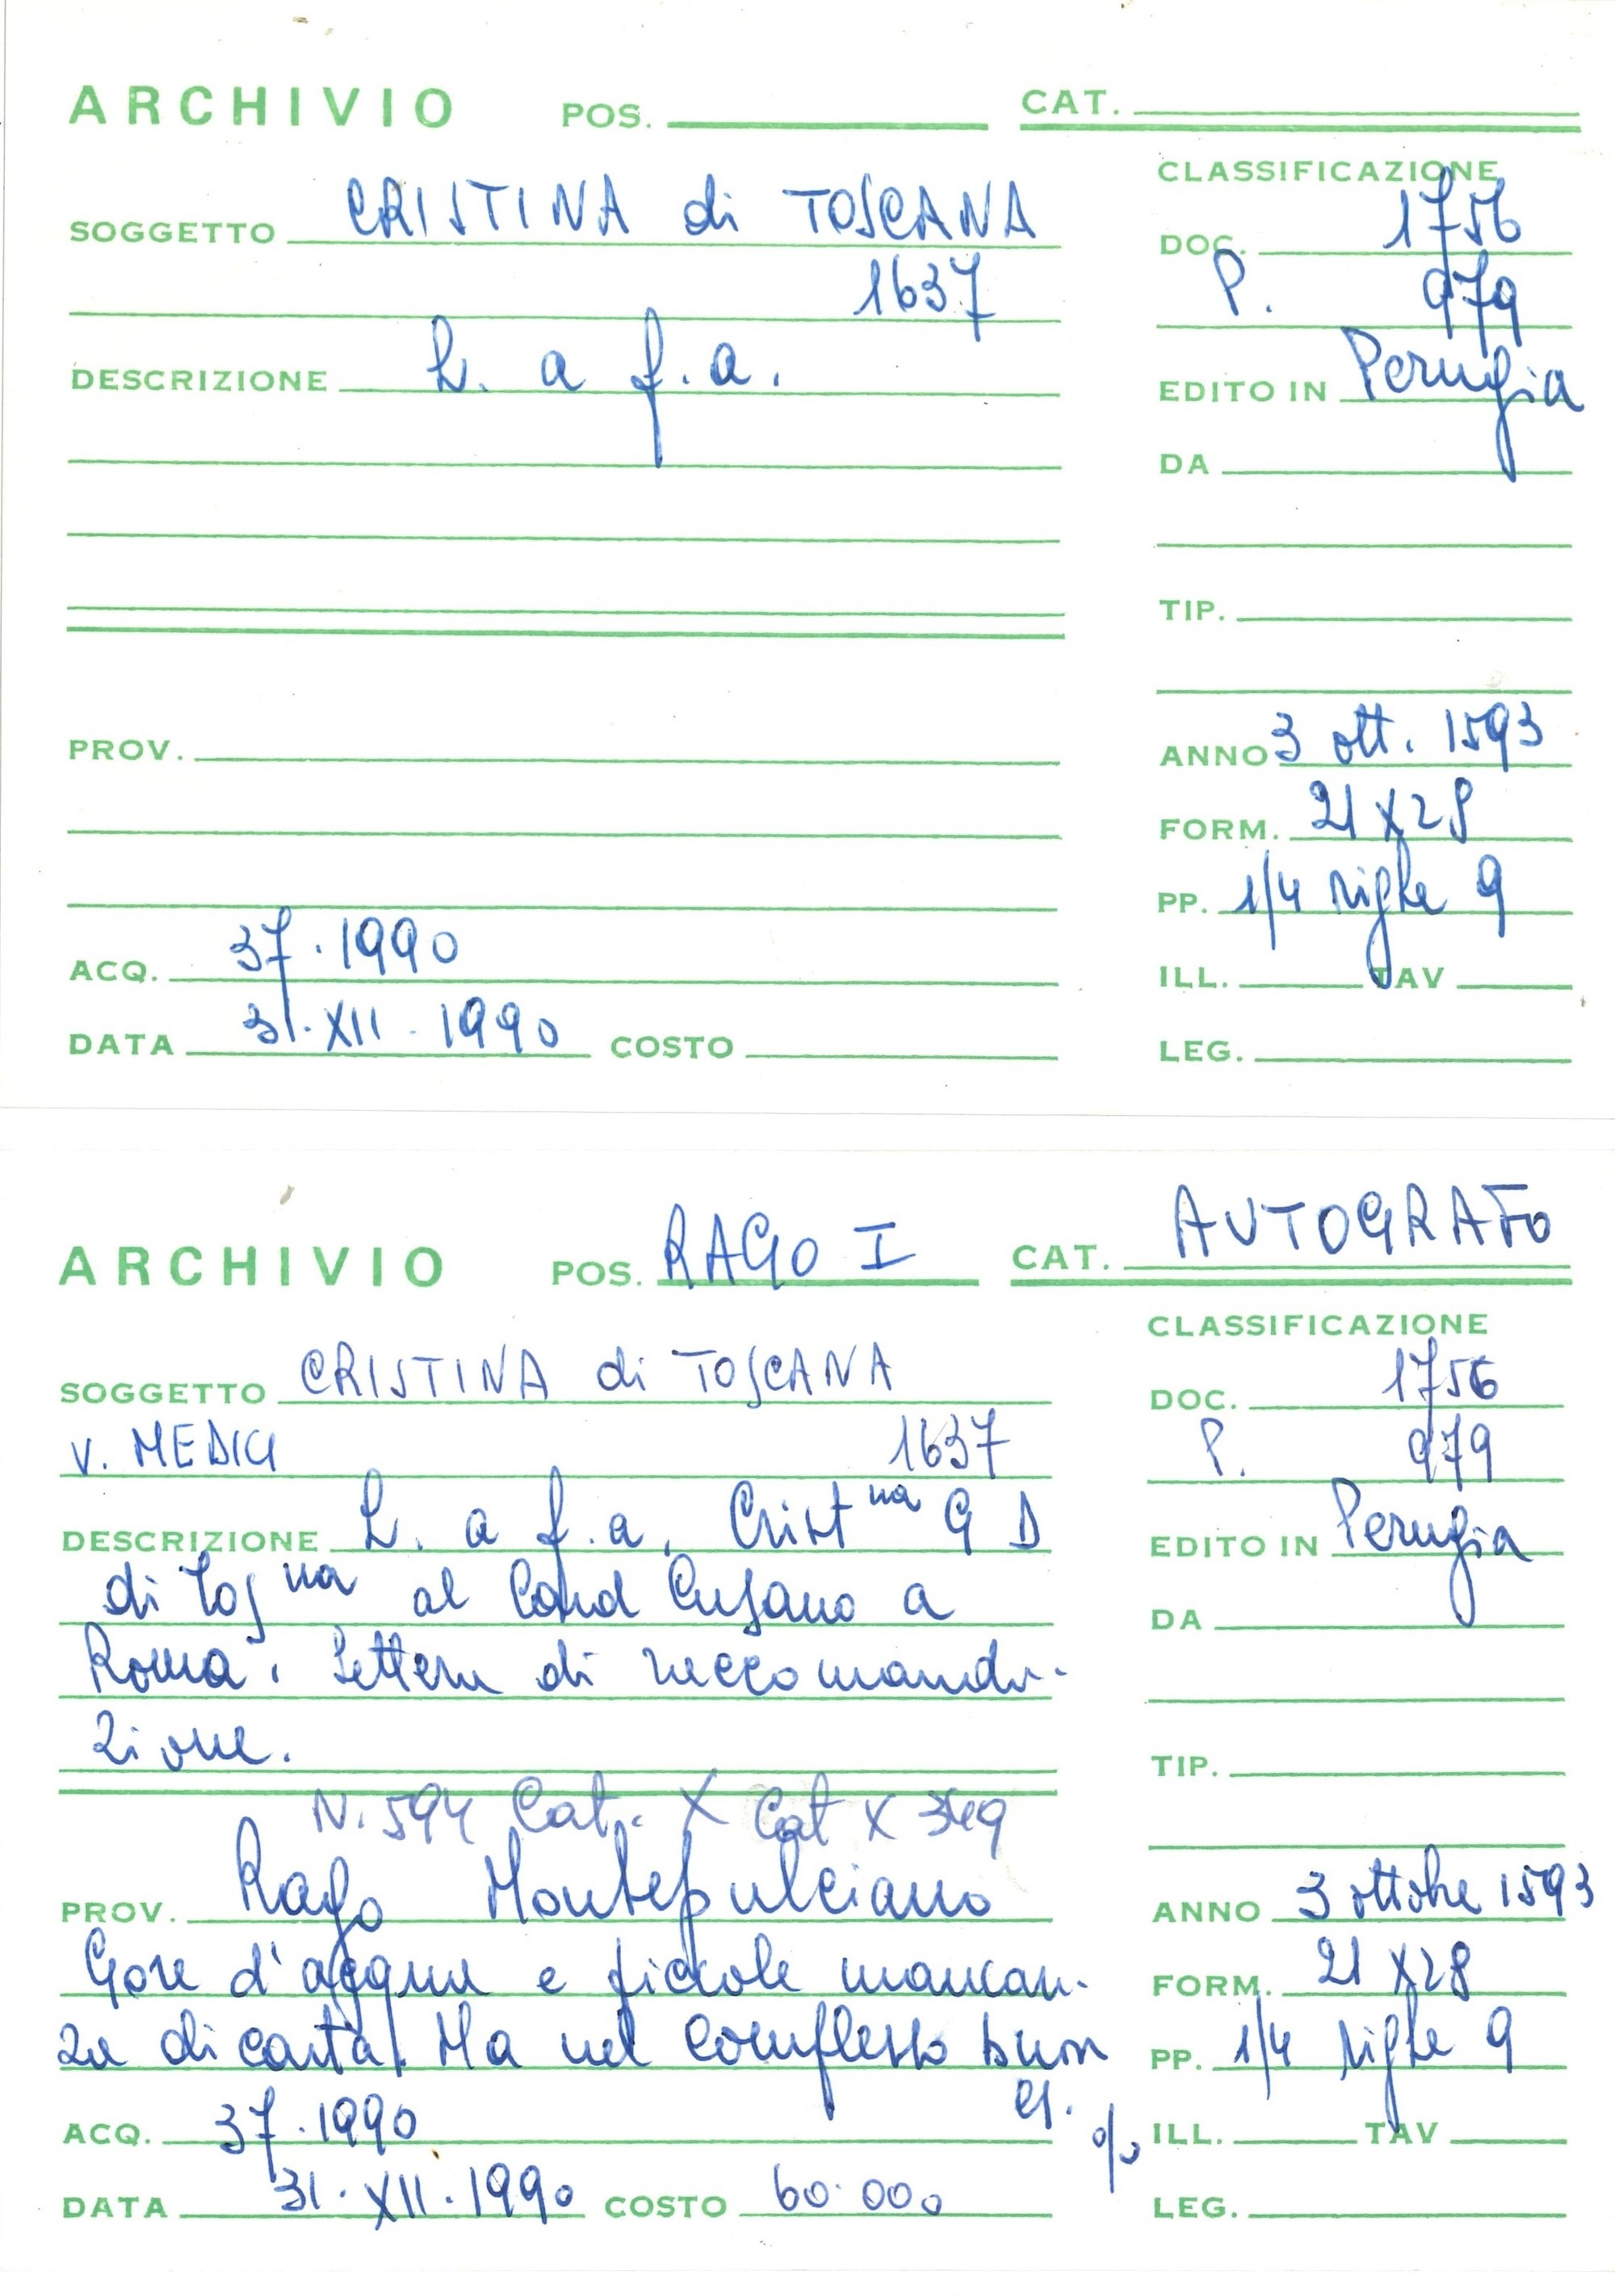 ARCHIVIO POS. CAT.
CLASSIFICAZIONE
SOGGETTO CRISTINA di TOSCANA
DOC. 1756
1637
P. 979
DESCRIZIONE L. a f.a.
EDITO IN Perugia
DA
TIP.
PROV.
ANNO 3 ott. 1593
FORM. 21 x 28
PP. 1/4 righe 9
ACQ. 37.1990
ILL. TAV
DATA 31.XII.1990 COSTO
LEG.
ARCHIVIO POS. RAGO I CAT. AUTOGRAFO
CLASSIFICAZIONE
SOGGETTO CRISTINA di TOSCANA
DOC. 1756
v. MEDICI 1637
P. 979
DESCRIZIONE L. a f.a. G D
EDITO IN Perugia
di Tosna al Cusano a
DA
Roma. Lettera di raccomanda-
zione.
TIP.
N. 594 Cat. X Cat X 349
PROV. Rago Montepulciano
ANNO 3 ottobre 1593
Gore d'acqua e piccole mancan-
FORM. 21 x 28
ze di carta. Ma nel complesso buon
PP. 1/4 righe 9
es.
ACQ. 37.1990
%
ILL. TAV
DATA 31.XII.1990 COSTO 60.000
LEG.